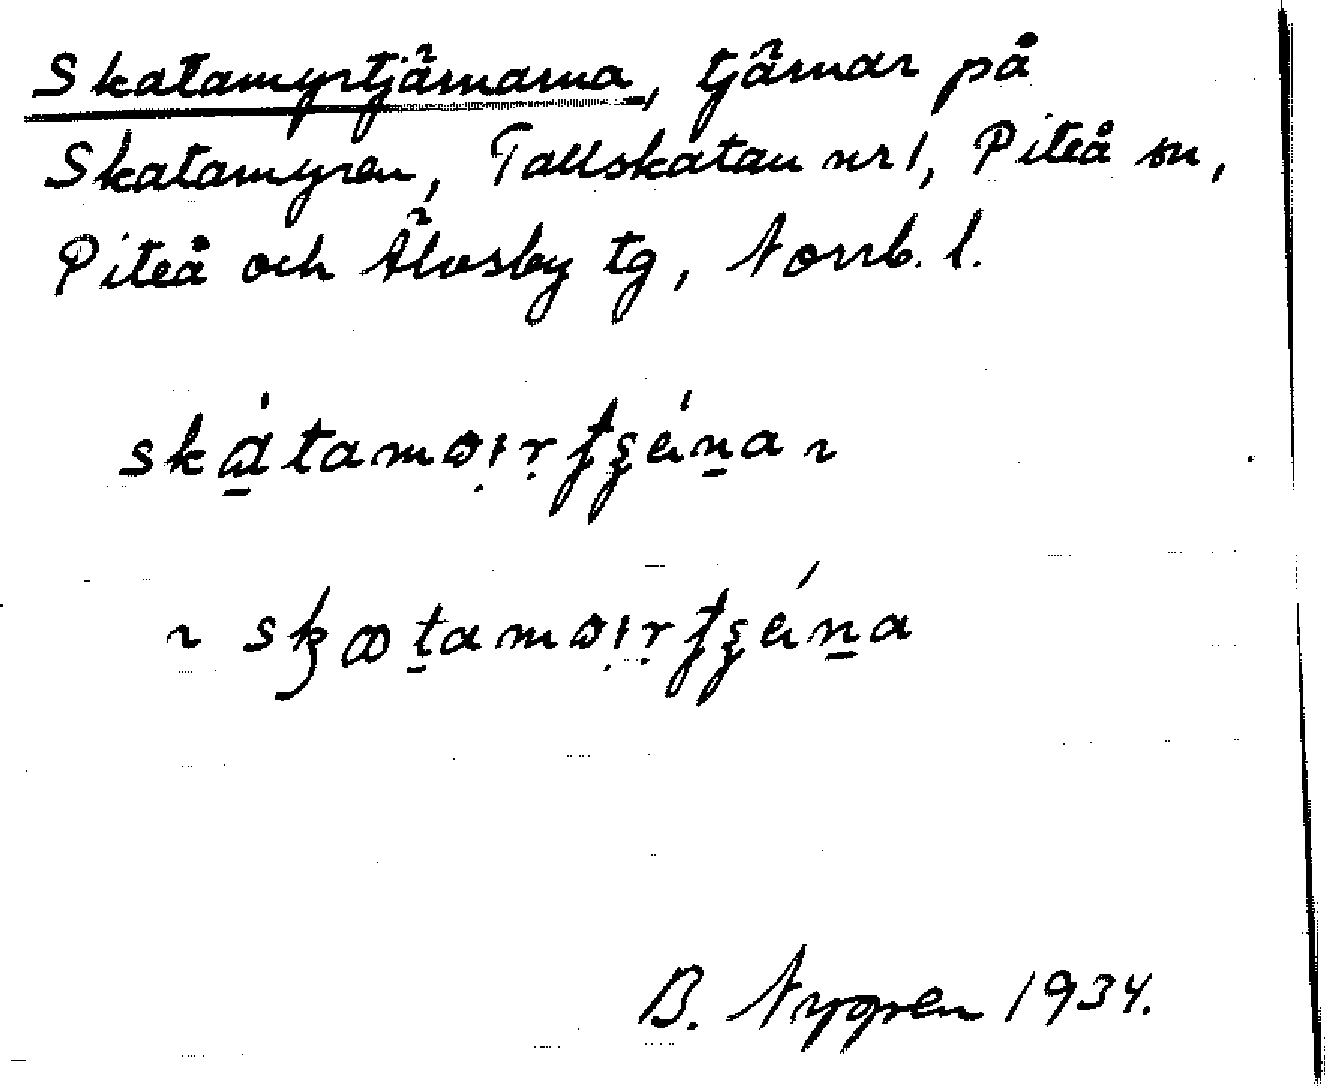 Skatamyrtjärnarna, tjärnar på
Skatamyren, Tallskatan nr 1, Piteå sn,
Piteå och Älvsby tg, Norrb. l.
B. Nygren 1934.